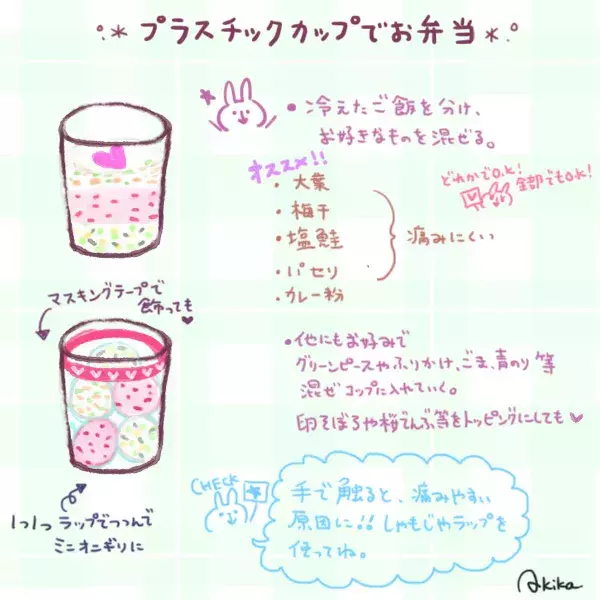 プラスチックカップでお弁当
・冷えたご飯を分け、
お好きなものを混ぜる。
オススメ!!
・大葉
・梅干
・塩鮭
・パセリ
・カレー粉
痛みにくい
どれかでO.K!
全部でもO.K!
マスキングテープで
飾っても♥
・他にもお好みで
グリーンピースやふりかけ、ごま、青のり等
混ぜコップに入れていく。
卵そぼろや桜でんぶ等をトッピングにしても♥
1つ1つラップでつつんで
ミニオニギリに
CHECK
手で触ると、痛みやすい
原因に!!しゃもじやラップを
使ってね。
Akika